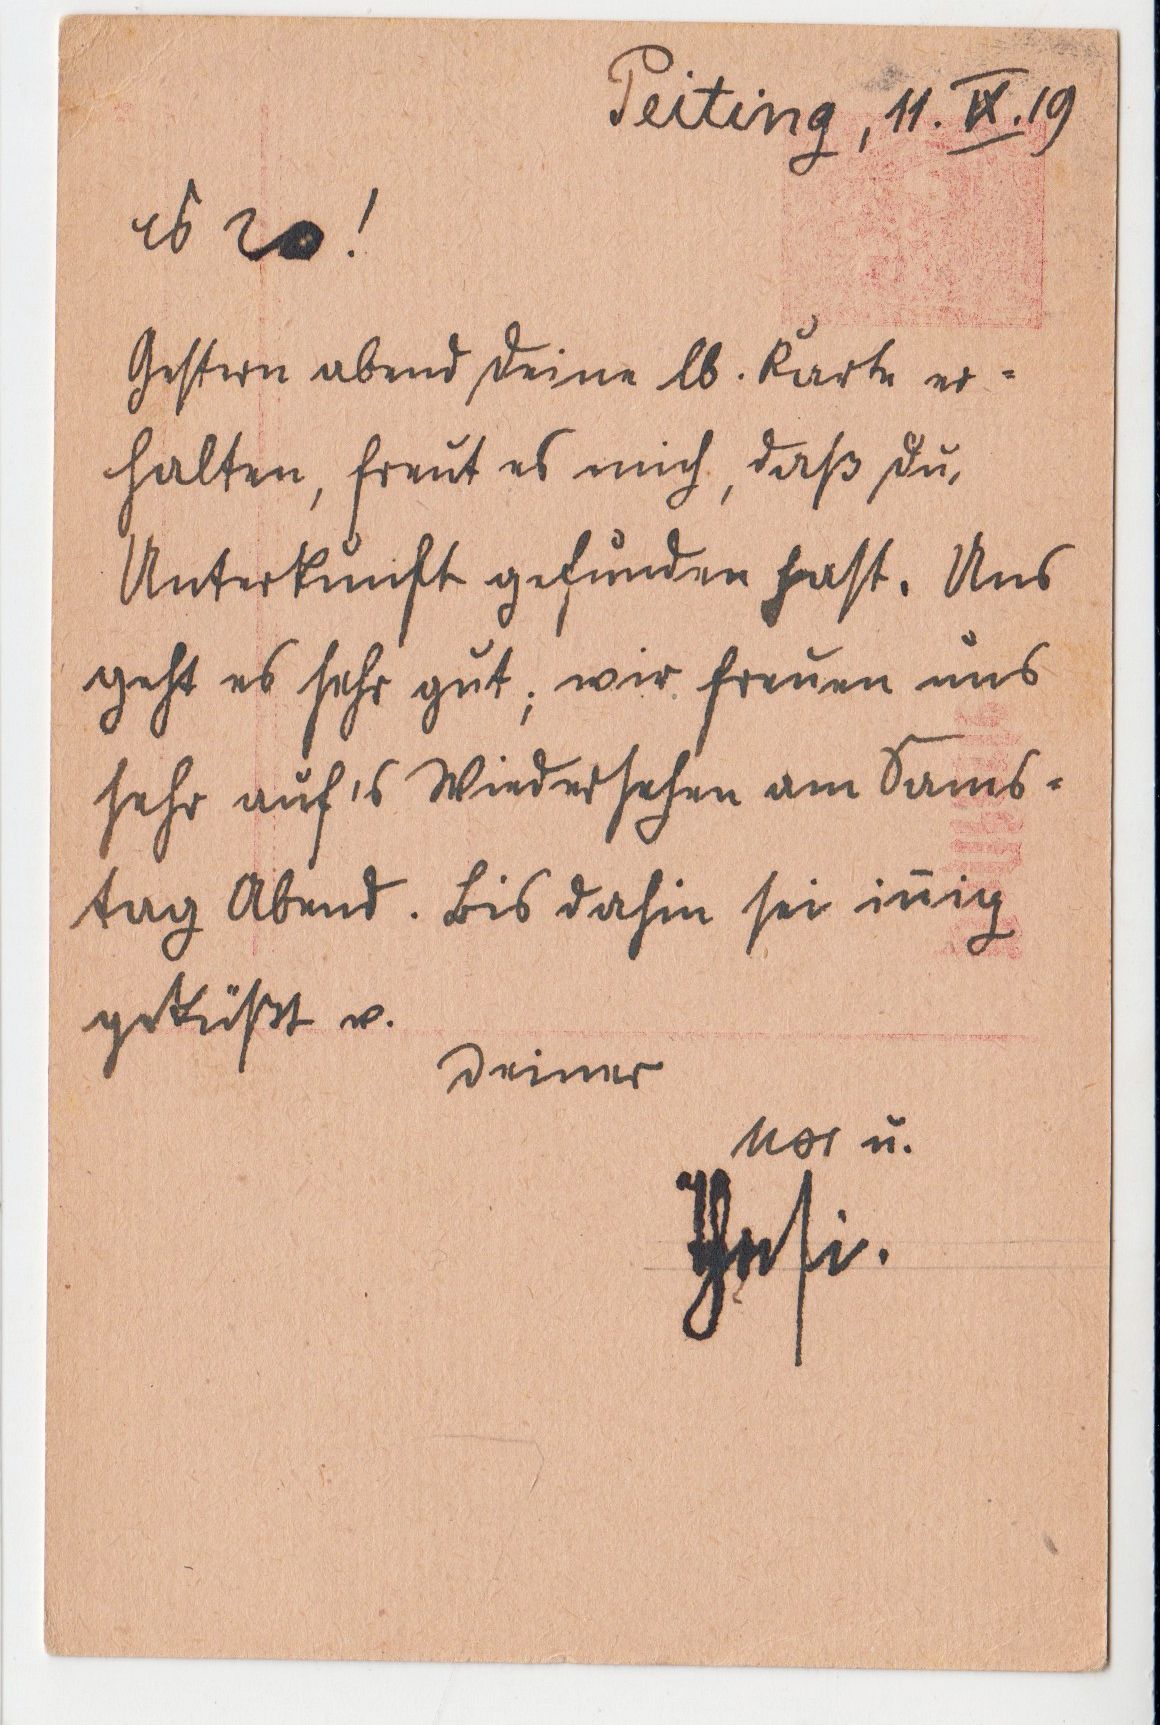 Peiting, 11. IX. 19
Gestern abend Deine lb. Karte er=
halten, freut es mich, daß Du,
Unterkunft gefunden hast. Uns
geht es sehr gut; wir freuen uns
sehr auf's Wiedersehen am Sams=
tag Abend. Bis dahin sei in̄ig
geküßt v.
Deiner
u.